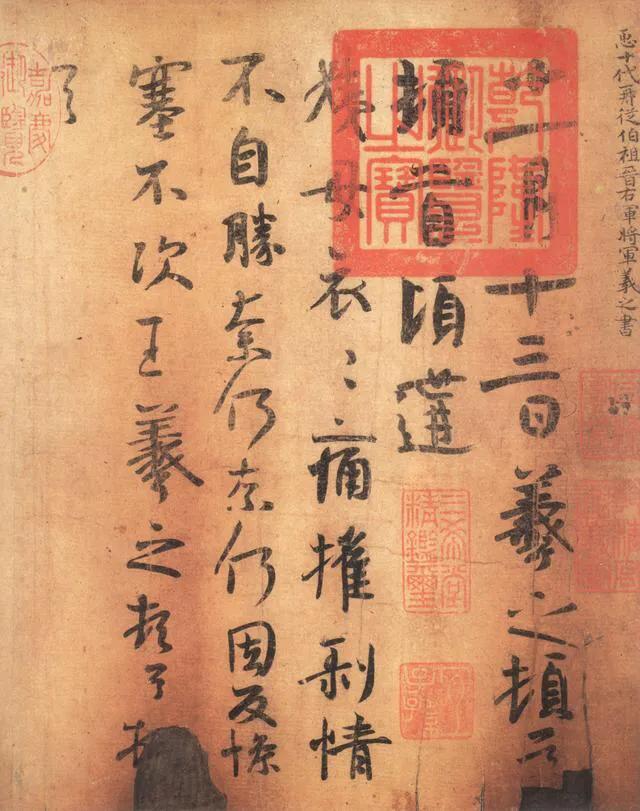 𢘑十代再從伯祖晉右軍將軍羲之書
十一月十三日羲之頓首
頓首頃遘
姨母哀〻痛摧剥情
不自勝奈何奈何因反慘
塞不次王羲之頓首頓
首
乾隆御覽之寶
三希堂精鑑璽
宜子孫
嘉慶御覽